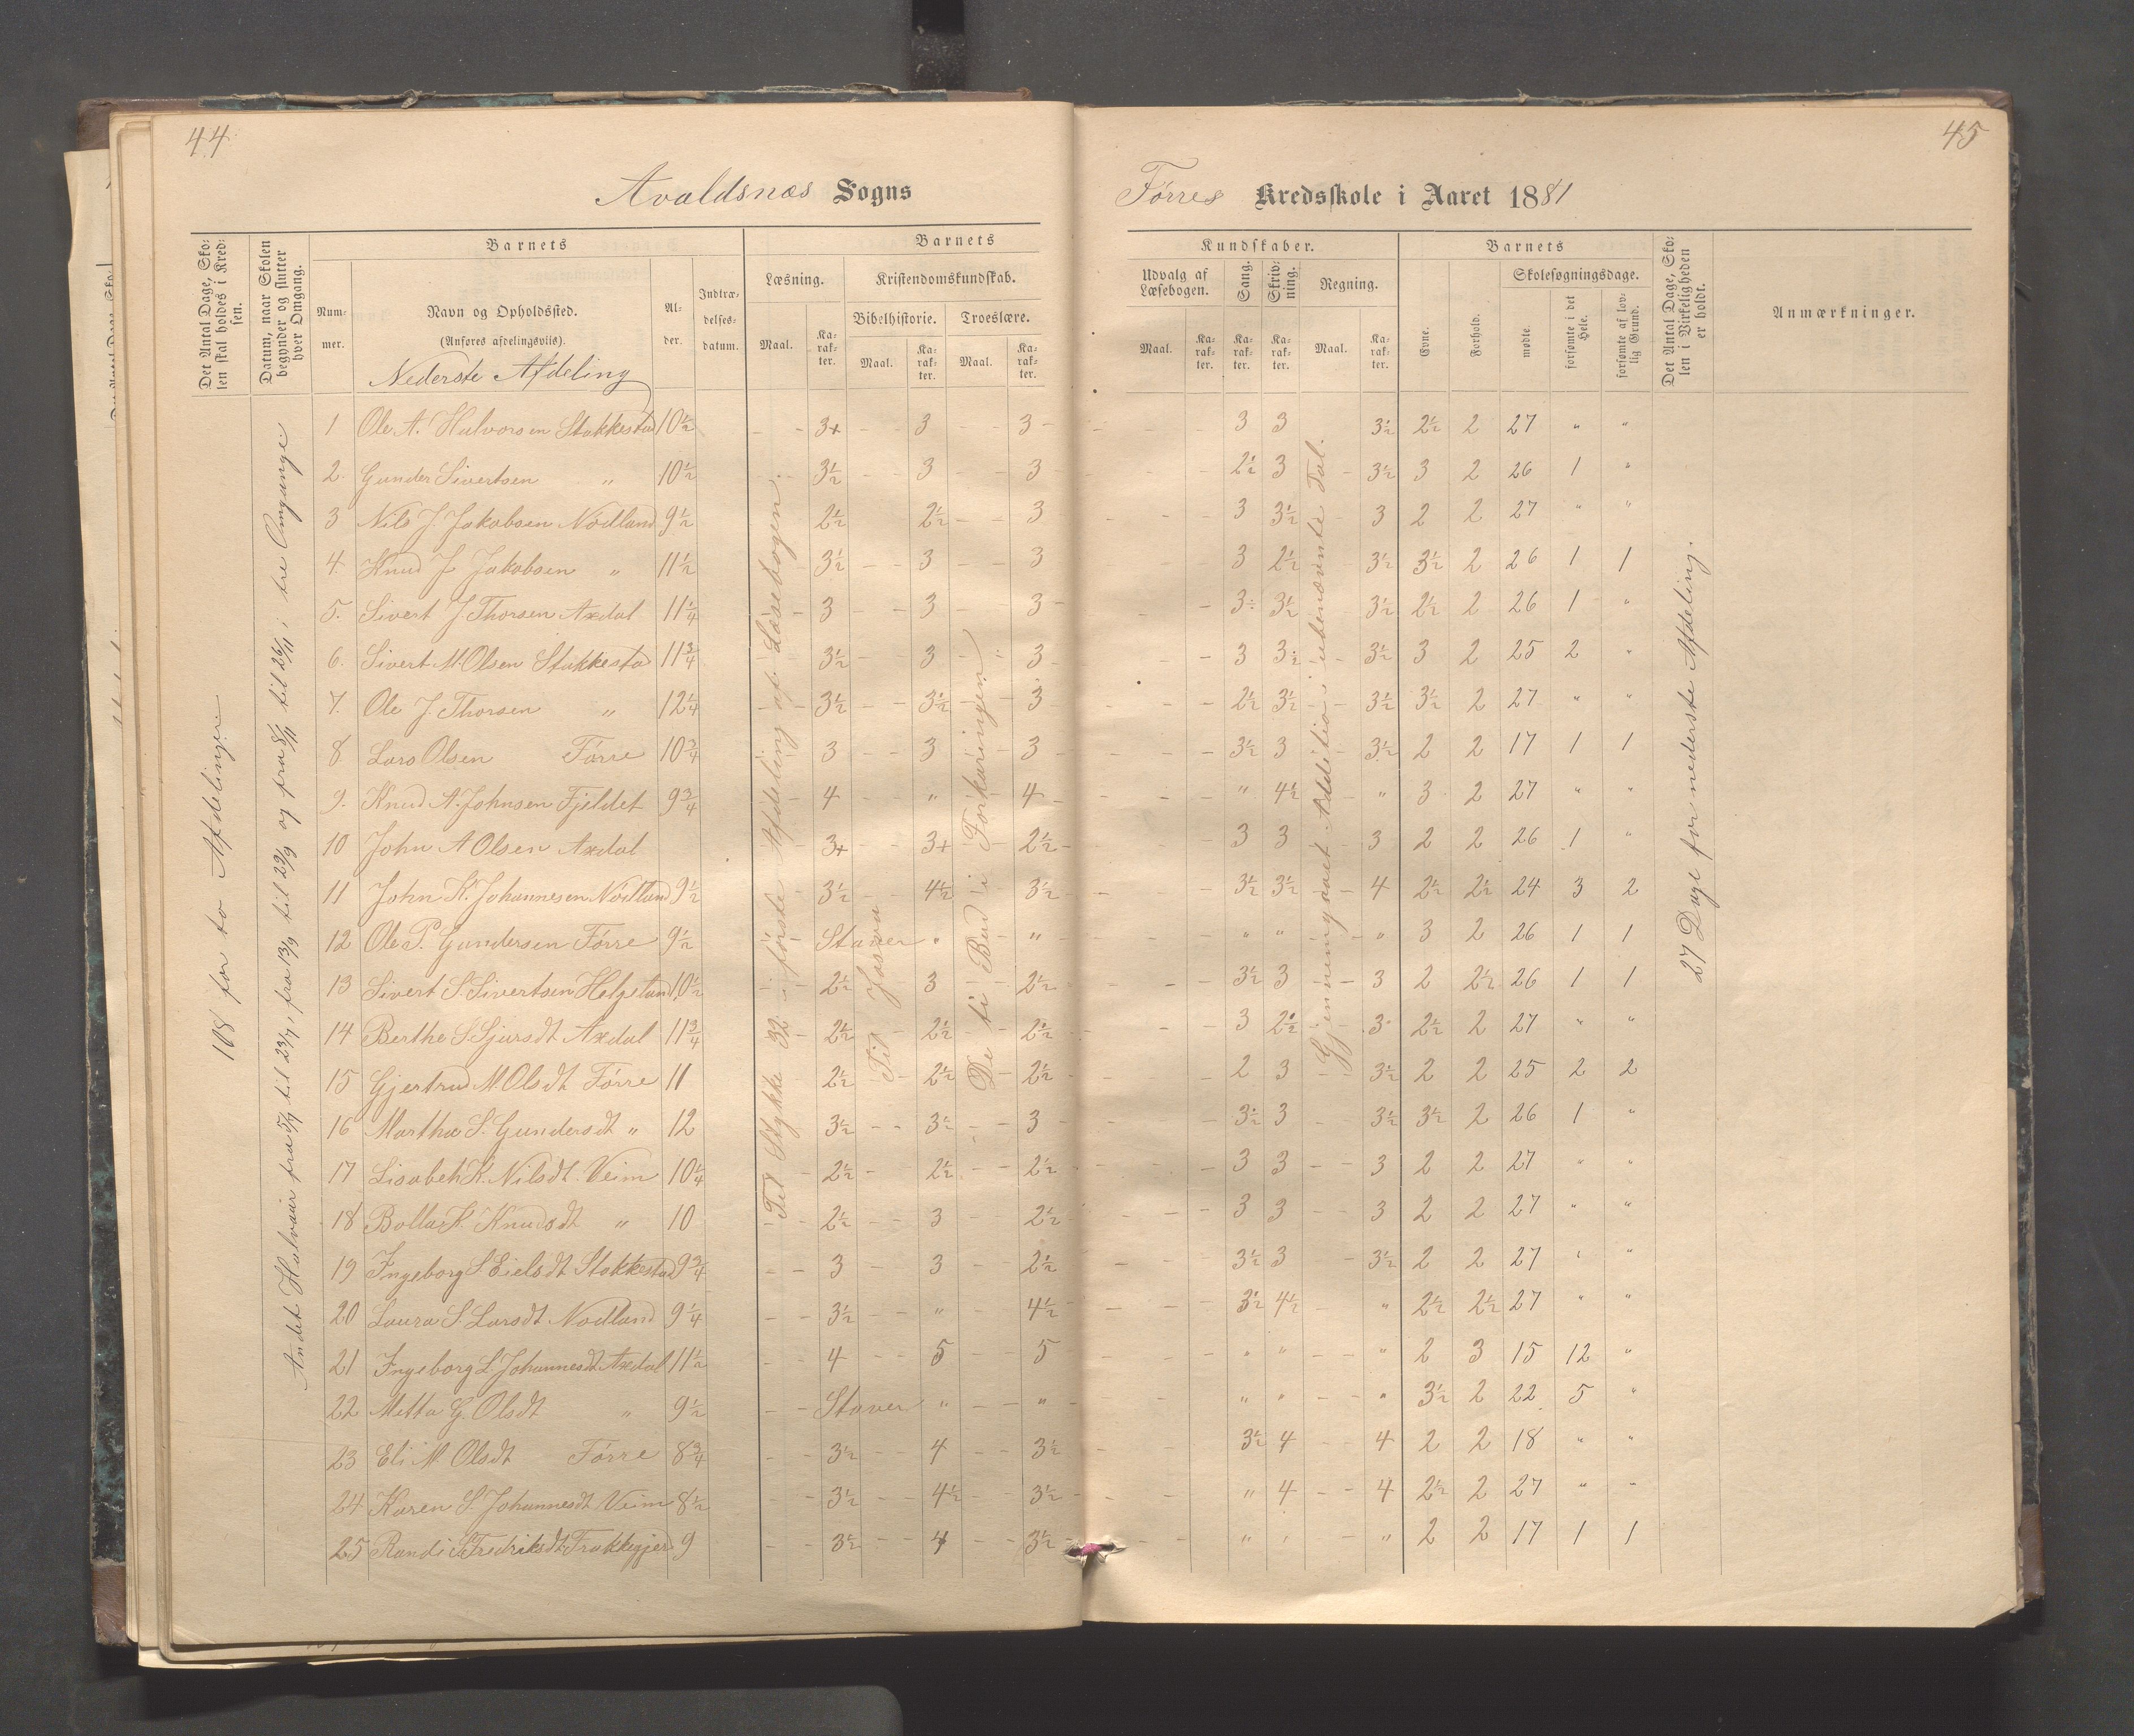 44
45
Avaldsnæs Sogns
Førres Kredsskole i Aaret 1881
Det Antal Dage, Skolen skal holdes i Kredsen.
Datum, naar Skolen begynder og slutter hver Omgang.
Barnets
Nummer.
Navn og Opholdssted.
(Anføres afdelingsvis).
Alder.
Indtrædelsesdatum.
Barnets
Læsning.
Kristendomskundskab.
Bibelhistorie. Troeslære.
Maal. Karakter. Maal. Karakter. Maal. Karakter.
Kundskaber.
Udvalg af Læsebogen. Sang. Skrivning. Regning.
Maal. Karakter. Karakter. Karakter. Maal. Karakter.
Barnets
Evne. Forhold.
Skolesøgningsdage.
mødte. forsømte i det Hele. forsømte af lovlig Grund.
Det Antal Dage, Skolen i Virkeligheden er holdt.
Anmærkninger.
Nederste Afdeling
108 for to Afdelinger
Andet Halvaar fra 5/7 til 23/7, fra 13/9 til 29/9 og fra 8/11 til 26/11 i tre Omgange
Til Stykke 32 i første Afdeling af Læsebogen.
Til Josva
De ti Bud i Forklaringen
Gjennemgaaet Addition i ubenævnte Tal.
27 Dage for nederste Afdeling.
1 Ole A. Halvorsen Stakkestad 10½ 3+ 3 3 3 3 3½ 2½ 2 27 " "
2. Gunder Sivertsen " 10½ 3½ 3 3 2½ 3 3½ 3 2 26 1 "
3 Nils J. Jakobsen Nodland 9½ 2½ 2½ 3 3 3½ 3 2 2 27 " "
4. Knud J. Jakobsen " 11½ 3½ 3 3 3 2½ 3½ 3½ 2 26 1 1
5. Sivert J. Thorsen Axdal 11¼ 3 3 3 3÷ 3½ 3½ 2½ 2 26 1 "
6. Sivert M. Olsen Stakkestad 11¾ 3½ 3 3 3 3½ 3½ 3 2 25 2 "
7. Ole J. Thorsen " 12¼ 3½ 3½ 3 2½ 3½ 3½ 3½ 2 27 " "
8 Lars Olsen Førre 10¾ 3 3 3 3½ 3 3½ 2 2 17 1 1
9. Knud A. Johnsen Fjeldet 9¾ 4 " 4 " 4½ " 3 2 27 " "
10 John A Olsen Axdal 3+ 3+ 2½ 3 3 3 2 2 26 1 "
11 John K. Johannesen Nodland 9½ 3½ 4½ 3½ 3½ 3½ 4 2½ 2½ 24 3 2
12 Ole P. Gundersen Førre 9½ Staver " " " " " 3 2 26 1 1
13 Sivert S Sivertsen Helgeland 10½ 2½ 3 2½ 3½ 3 3 2 2½ 26 1 1
14 Berthe S Sjursdt Axdal 11¾ 2½ 2½ 2½ 3 2½ 3 2½ 2 27 " "
15 Gjertrud M Olsdt Førre 11 2½ 2½ 2½ 2 3 3½ 2 2 25 2 2
16 Martha S. Gundersdt " 12 3½ 3½ 3 3½ 3 3½ 3½ 2 26 1 "
17 Lisabeh K. Nilsdt. Veim 10¼ 2½ 2½ 2½ 3 3 3 2 2 27 " "
18 Bolla K. Knudsdt " 10 2½ 3 2½ 3 3 3 2 2 27 " "
19 Ingeborg S Eielsdt Stakkestad 9¾ 3 3 2½ 3½ 3 3½ 2 2 27 " "
20 Laura S. Larsdt Nodland 9¼ 3½ " 4½ 3½ 4½ " 2½ 2½ 27 " "
21 Ingeborg L. Johannesdt Axdal 11½ 4 5 5 " " " 2 3 15 12 "
22 Metta G. Olsdt " 9½ Staver " " " " " 3½ 2 22 5 "
23 Eli M Olsdt Førre 8¾ 3½ 4 3½ 3½ 4 4 2 2 18 " "
24 Karen S. Johannesdt Veim 8½ 3½ 4½ 3½ " 4 4 2½ 2 27 " "
25 Randi Fredriksdt 9 3½ 4 3½ " " " 2 2 17 1 1